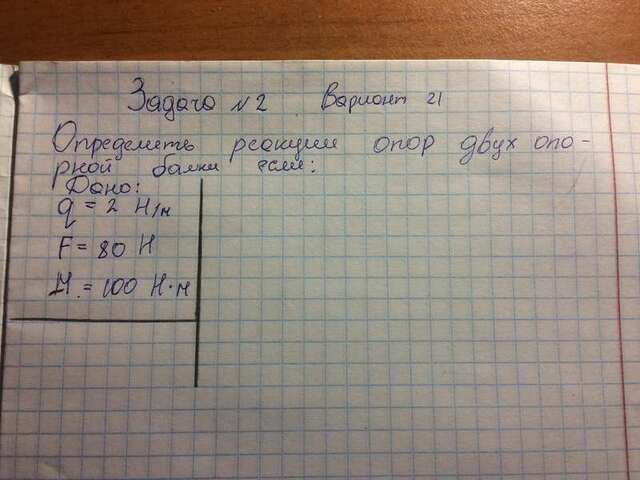 Задача N2 Вариант 21
Определить реакции опор двух опо-
рной балки если:
Дано:
q = 2 Н/м
F = 80 Н
М = 100 Н·м